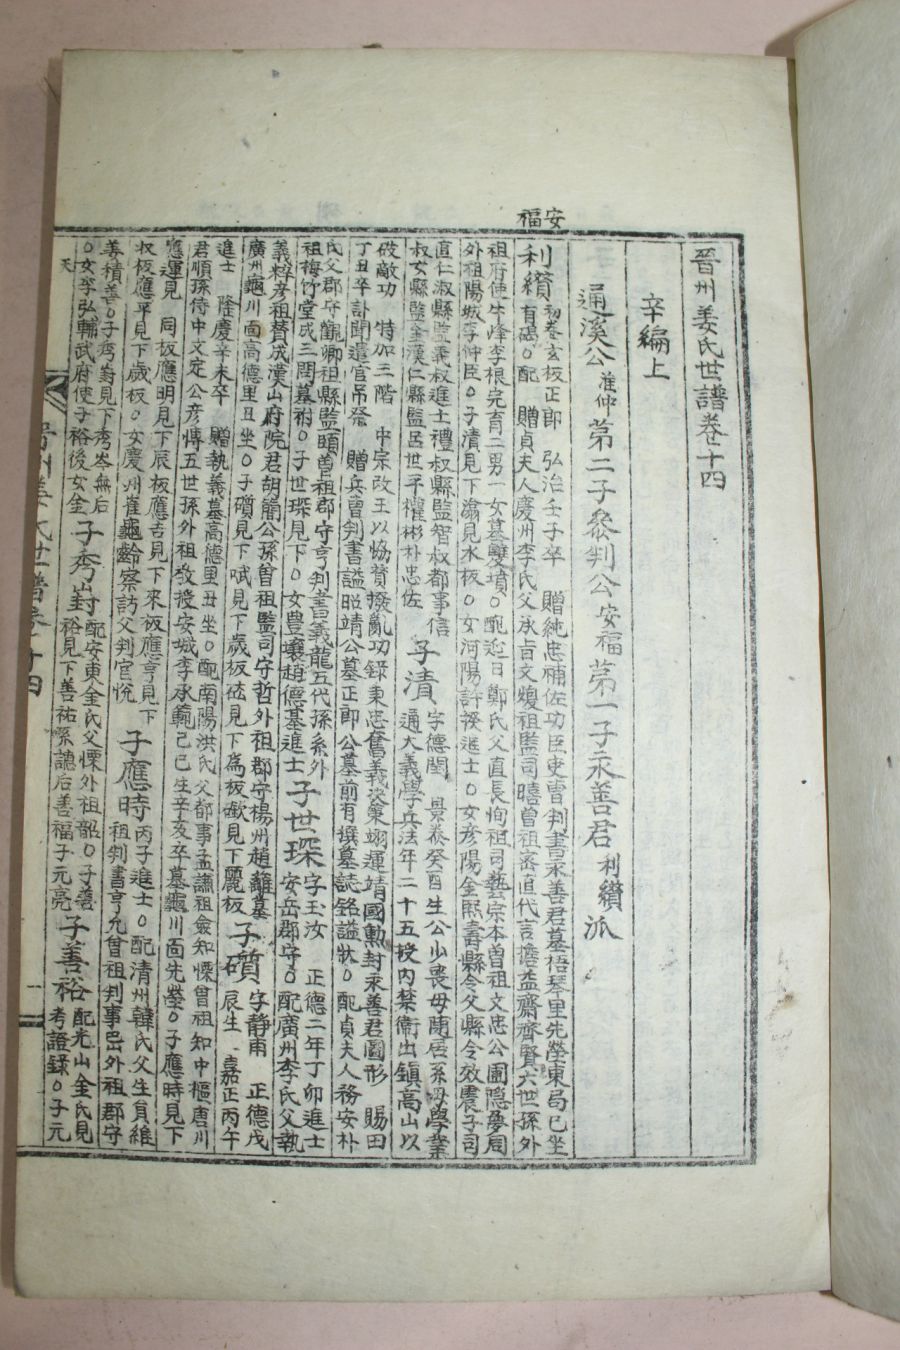 安福
晉州姜氏世譜卷十四
辛編上
通溪公 淮仲 第二子參判公 安福 第一子永善君 利纘 派
利纘 初卷玄板正郎 弘治壬子卒 贈純忠補佐功臣吏曹判書永善君墓梧琴里先塋東局巳坐
有碣○配 贈貞夫人慶州李氏父承旨文煥祖監司暿曾祖密直代言
祖府使牛峰李根完育二男一女墓雙墳○配延日鄭氏父直長恂祖司藝宗本曾祖文忠公圃隱夢周
外祖陽城李仲臣○子清見下 見水板○女河陽許 進士○女彦陽金熙壽縣令父縣令效震子司
直仁淑縣監義叔進士禮叔縣監智叔都事信
叔女縣監金漢仁縣監呂世平權彬朴忠佐
子清 字德 景泰癸酉生公少喪母隨居系母學業
通大義學兵法年二十五授內禁衛出鎮高山以
破敵功 特加三階 中宗改王以協贊撥亂功錄秉忠奮義決策翊運靖國勳封永善君圖形 賜田
丁丑卒訃聞遣官吊祭 贈兵曹判書謚昭靖公墓正郎公墓前有撰墓誌銘謚狀○配貞夫人務安朴
氏父郡守 祖縣監頤曾祖郡守亨判書義龍五代孫系外
祖梅竹堂成三問墓祔○子世琛見下○女豊壤趙德基進士
子世琛 字玉汝 正德二年丁卯進士
安岳郡守○配廣州李氏父執
義粹彦祖贊成漢山府院君胡簡公孫曾祖監司守哲外祖郡守楊州趙 墓
廣州龜川面高德里丑坐○子礩見下 見下歲板 見下為板 見下麗板
子礩 字靜甫 正德戊
辰生 嘉正丙午
進士 隆慶辛未卒 贈執義墓高德里丑坐○配南陽洪氏父都事孟 祖僉知慄曾祖知中樞唐川
君順孫侍中文定公彦博五世孫外祖敎授安城李承範己巳生辛亥卒墓龜川面先塋○子應時見下
應運見 同板應明見下辰板應吉見下來板應亨見下
收板應平見下歲板○女慶州崔龜齡察訪父判官悅
子應時 丙子進士○配清州韓氏父生員維
祖判書亨允曾祖判事 外祖郡守
善積善○子秀 見下秀岑無后
○女李弘輔武府使子裕後女金
子秀崶 配安東金氏父慄外祖 ○子善
裕見下善祐系 后善福子元亮
子善裕 配光山金氏見
考證錄○子元
天
晉州姜氏世譜卷十四
一